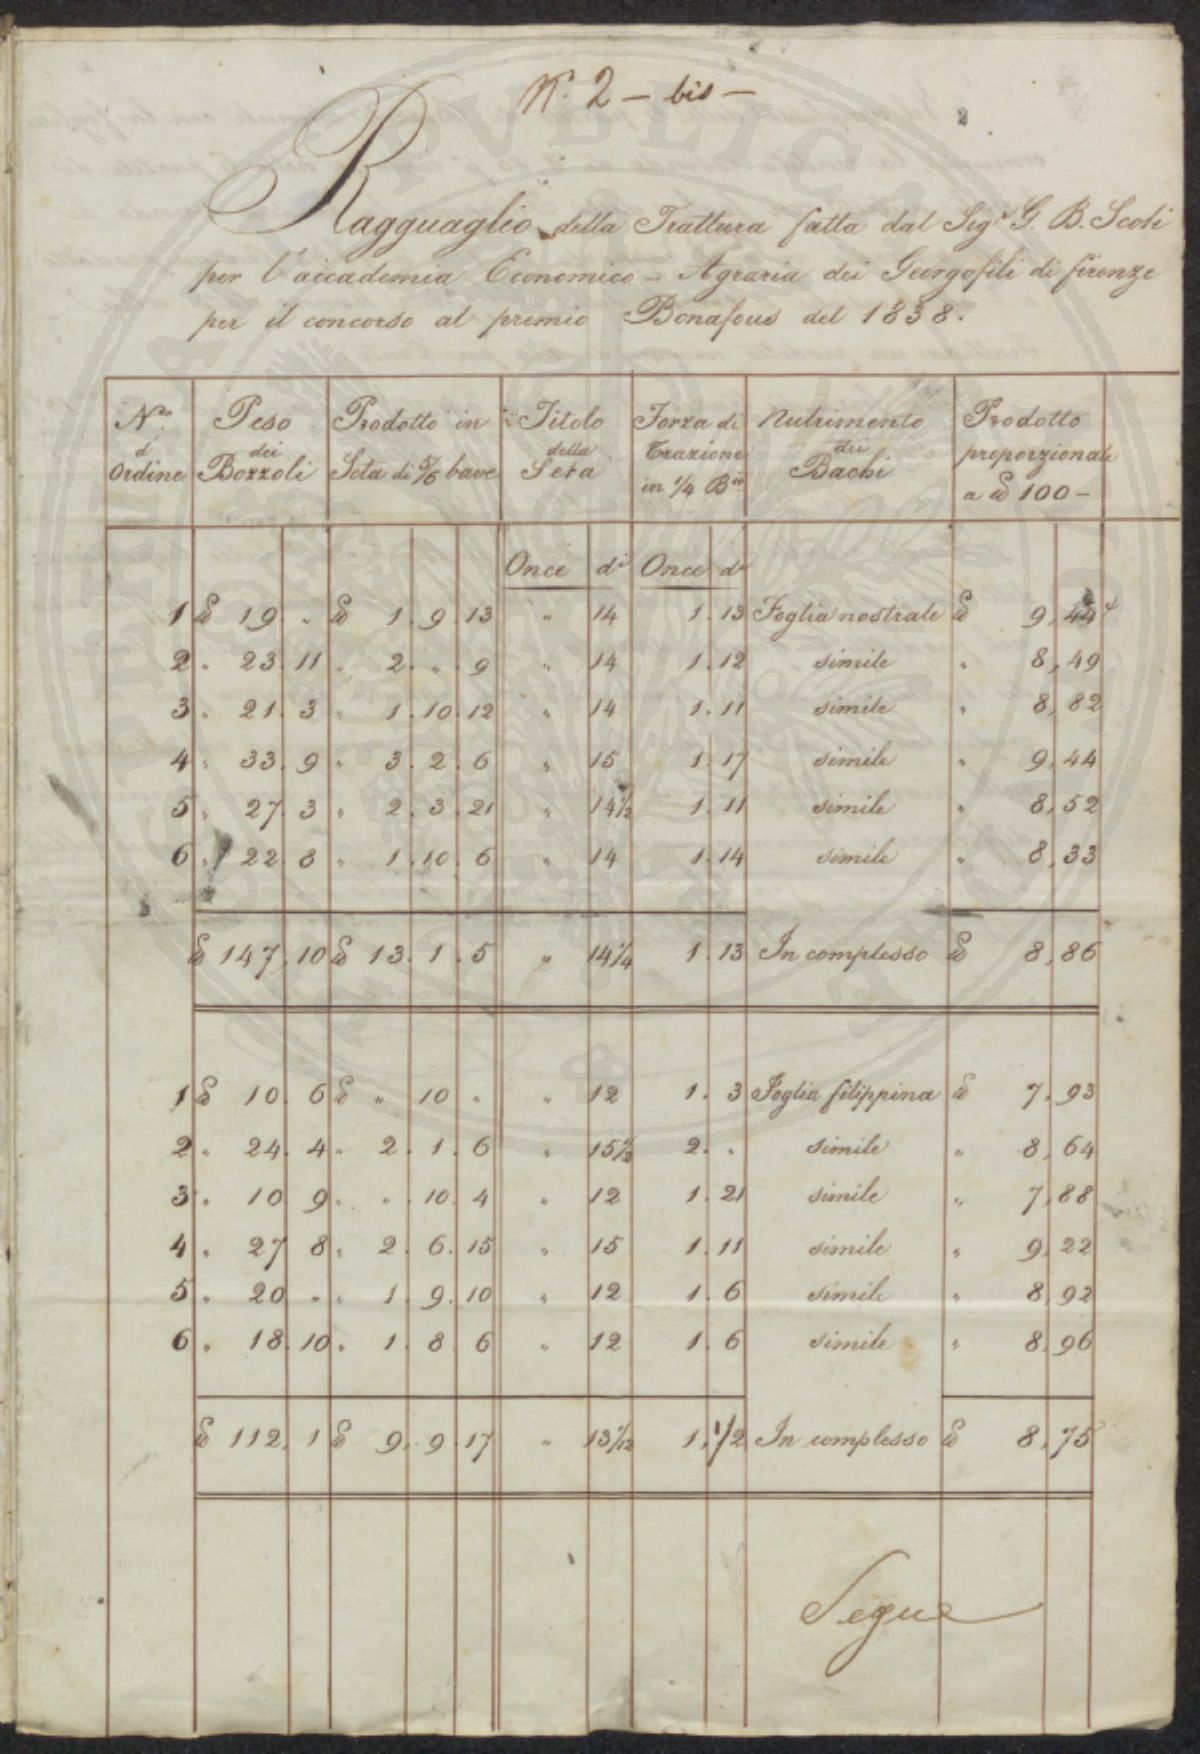 N.° 2 — bis —
2
Ragguaglio della Trattura fatta dal Sigr G. B. Scoti
per l'accademia Economico - Agraria dei Georgofili di firenze
per il concorso al premio Bonafous del 1838.
N.° d' Ordine | Peso dei Bozzoli | Prodotto in Seta di 5/6 bave | Titolo della Seta | Forza di Trazione in 1/4 Bio | Nutrimento dei Bachi | Prodotto proporzionale a ₶ 100 -
Once di Once di
1 ₶ 19 " ₶ 1. 9. 13 " 14 1. 13 Foglia nostrale ₶ 9, 44
2 " 23. 11 " 2. " . 9 " 14 1. 12 simile " 8, 49
3 " 21. 3 " 1. 10. 12 " 14 1. 11 simile " 8, 82
4 " 33. 9 " 3. 2. 6 " 15 1. 17 simile " 9, 44
5 " 27. 3 " 2. 3. 21 " 14½ 1. 11 simile " 8, 52
6 " 22. 8 " 1. 10. 6 " 14 1. 14 simile " 8, 33
₶ 147, 10 ₶ 13. 1. 5 " 14¼ 1. 13 In complesso ₶ 8, 86
1 ₶ 10. 6 ₶ " 10 " " 12 1. 3 Foglia filippina ₶ 7, 93
2 " 24. 4 " 2. 1. 6 " 15½ 2. " simile " 8, 64
3 " 10 9 " " . 10. 4 " 12 1. 21 simile " 7, 88
4 " 27 8 " 2. 6. 15 " 15 1. 11 simile " 9, 22
5 " 20 " " 1. 9. 10 " 12 1. 6 simile " 8, 92
6 " 18. 10 " 1. 8 6 " 12 1. 6 simile " 8, 96
₶ 112, 1 ₶ 9. 9. 17 " 13 1/12 1, 1/2 In complesso ₶ 8, 75
Segue